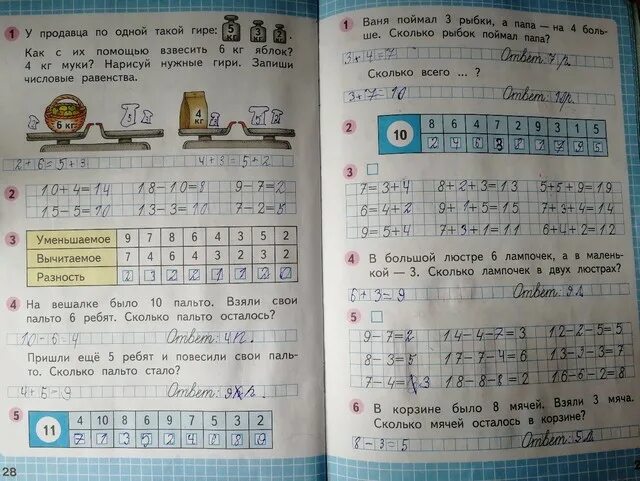 1 У продавца по одной такой гире: 5 кг 3 кг 2 кг
Как с их помощью взвесить 6 кг яблок?
4 кг муки? Нарисуй нужные гири. Запиши
числовые равенства.
6 кг
4 кг
2+6=5+3 4+3=5+2
2
10+4=14 18-10=8 9-7=2
15-5=10 13-3=10 7-2=5
3
Уменьшаемое 9 7 8 6 4 3 5 2
Вычитаемое 7 4 6 4 3 2 3 2
Разность 2 3 2 2 1 1 2 0
4 На вешалке было 10 пальто. Взяли свои
пальто 6 ребят. Сколько пальто осталось?
10-6=4 Ответ: 4п.
Пришли ещё 5 ребят и повесили свои паль-
то. Сколько пальто стало?
4+5=9 Ответ: 9 п.
5
11 4 10 8 6 9 7 5 3 2
7 1 3 5 2 4 6 8 9
28
1 Ваня поймал 3 рыбки, а папа — на 4 боль-
ше. Сколько рыбок поймал папа?
3+4=7 Ответ: 7р.
Сколько всего ... ?
3+7=10 Ответ: 10р.
2
10 8 6 4 7 2 9 3 1 5
2 4 6 3 8 1 7 9 5
3
7=3+4 8+2+3=13 5+5+9=19
6=4+2 9+1+5=15 7+3+4=14
9=5+4 7+3+1=11 6+4+2=12
4 В большой люстре 6 лампочек, а в малень-
кой — 3. Сколько лампочек в двух люстрах?
6+3=9 Ответ: 9л.
5
9-7=2 14-4-7=3 12-2-5=5
8-3=5 17-7-4=6 13-3-3=7
7-4=3 18-8-8=2 16-6-2=8
6 В корзине было 8 мячей. Взяли 3 мяча.
Сколько мячей осталось в корзине?
8-3=5 Ответ: 5